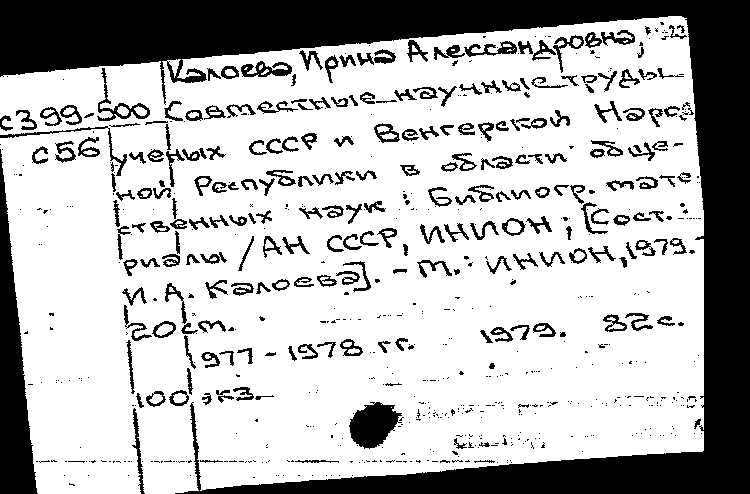 Калоева, Ирина Александровна,
с399-500 Совместные научные труды
с56 ученых СССР и Венгерской Народ
ной Республики в области обще-
ственных наук : Библиогр. мате
риалы / АН СССР, ИНИОН ; [Сост. :
И. А. Калоева]. - М. : ИНИОН, 1979. -
20 см.
1977 - 1978 гг. 1979. 82 с.
100 экз.